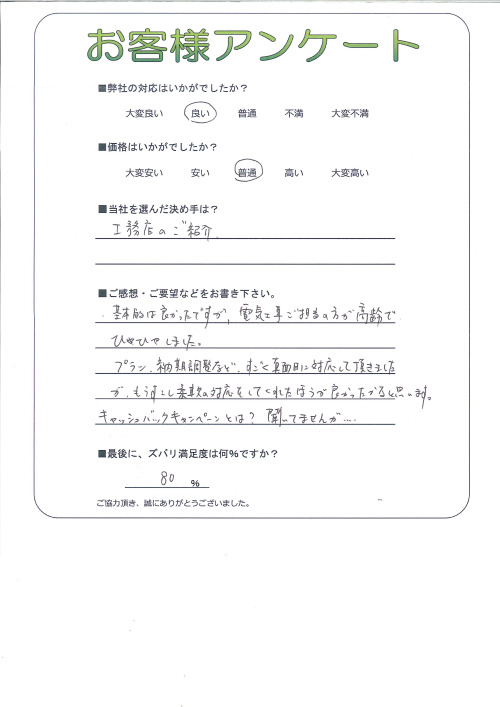 お客様アンケート
■弊社の対応はいかがでしたか？
大変良い 良い 普通 不満 大変不満
■価格はいかがでしたか？
大変安い 安い 普通 高い 大変高い
■当社を選んだ決め手は？
工務店のご紹介.
■ご感想・ご要望などをお書き下さい。
・基本的は良かったですが、電気工事ご担当の方が高齢で
ひやひやしました。
プラン、納期調整など、すごく真面目に対応して頂きました
が、もうすこし柔軟な対応をしてくれたほうが良かったかなと思います。
キャッシュバックキャンペーンとは？ 聞いてませんが....
■最後に、ズバリ満足度は何%ですか？
80 %
ご協力頂き、誠にありがとうございました。